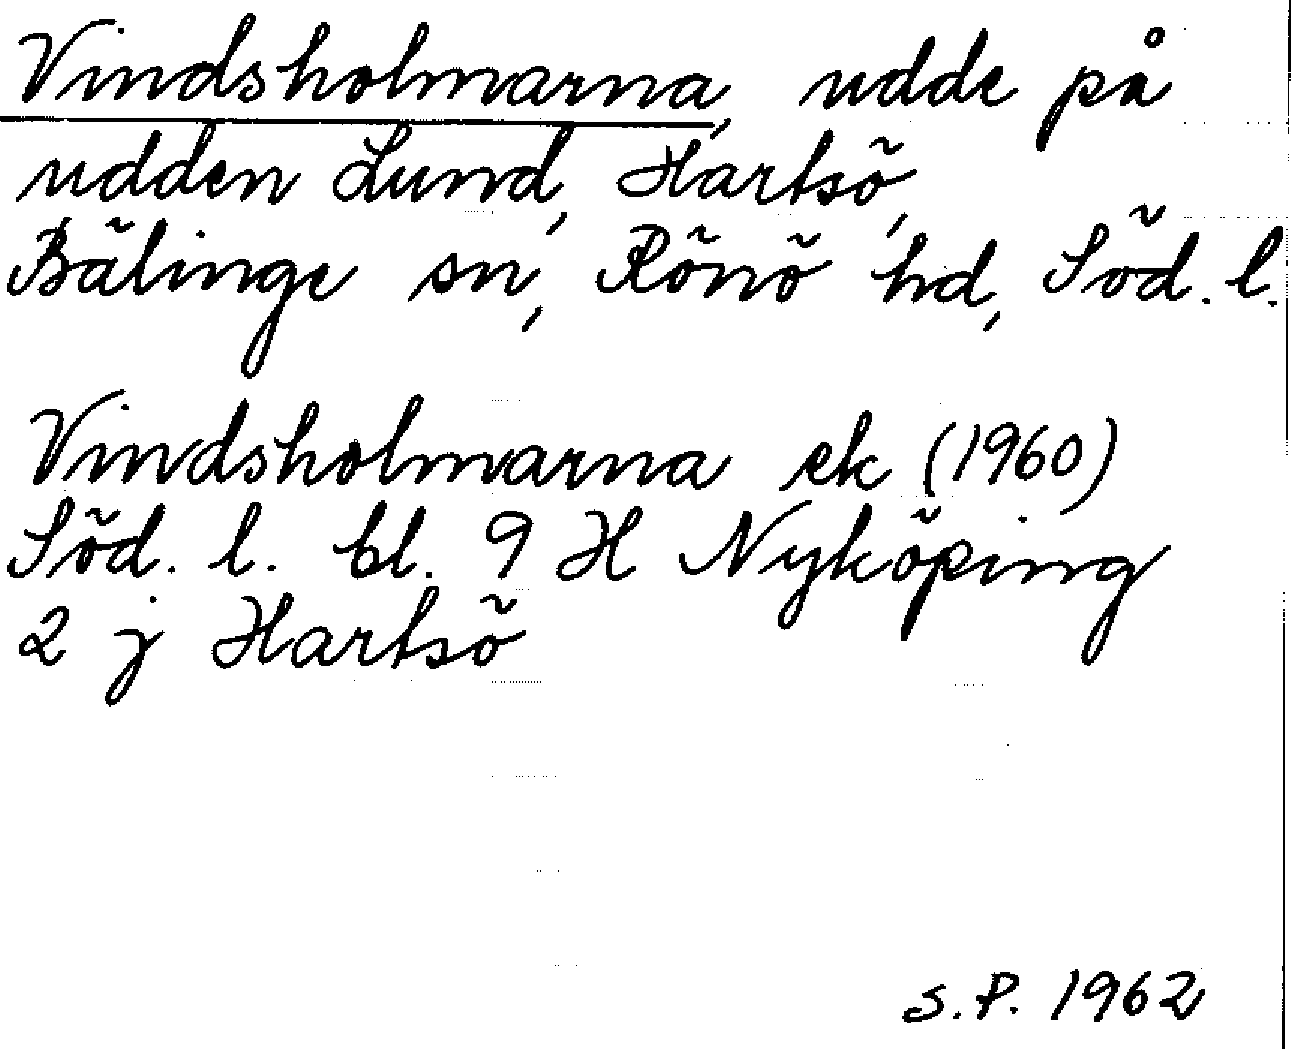 Vindsholmarna, udde på
udden Lund, Hartsö,
Bälinge sn, Rönö hd, Söd. l.
Vindsholmarna ek (1960)
Söd. l. bl. 9 H Nyköping
2 j Hartsö
S.P. 1962